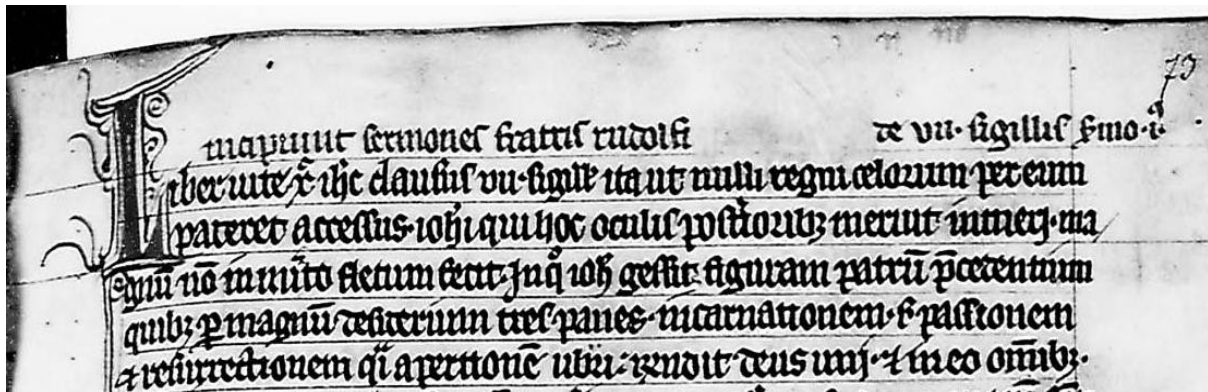 73
Incipiunt sermones fratris rudolfi de vii· sigillis s̄mo·iꝰ
Liber uite xp̄ ihc clausus vii· sigill' ita ut nulli regni celorum per eum
pateret accessus· ioħi qui hoc oculis postīoribꝫ meruit intueri· ma
gnū nō inmīto fletum fecit· In qͦ ioħ gessit figuram patrū p̄cedentium
quibꝫ ꝑ magnū desiderium tres panes· incarnationem· ſ passionem
⁊ resurrectionem qͥ apertionē libri· deus uni· ⁊ in eo om̄ibꝫ·